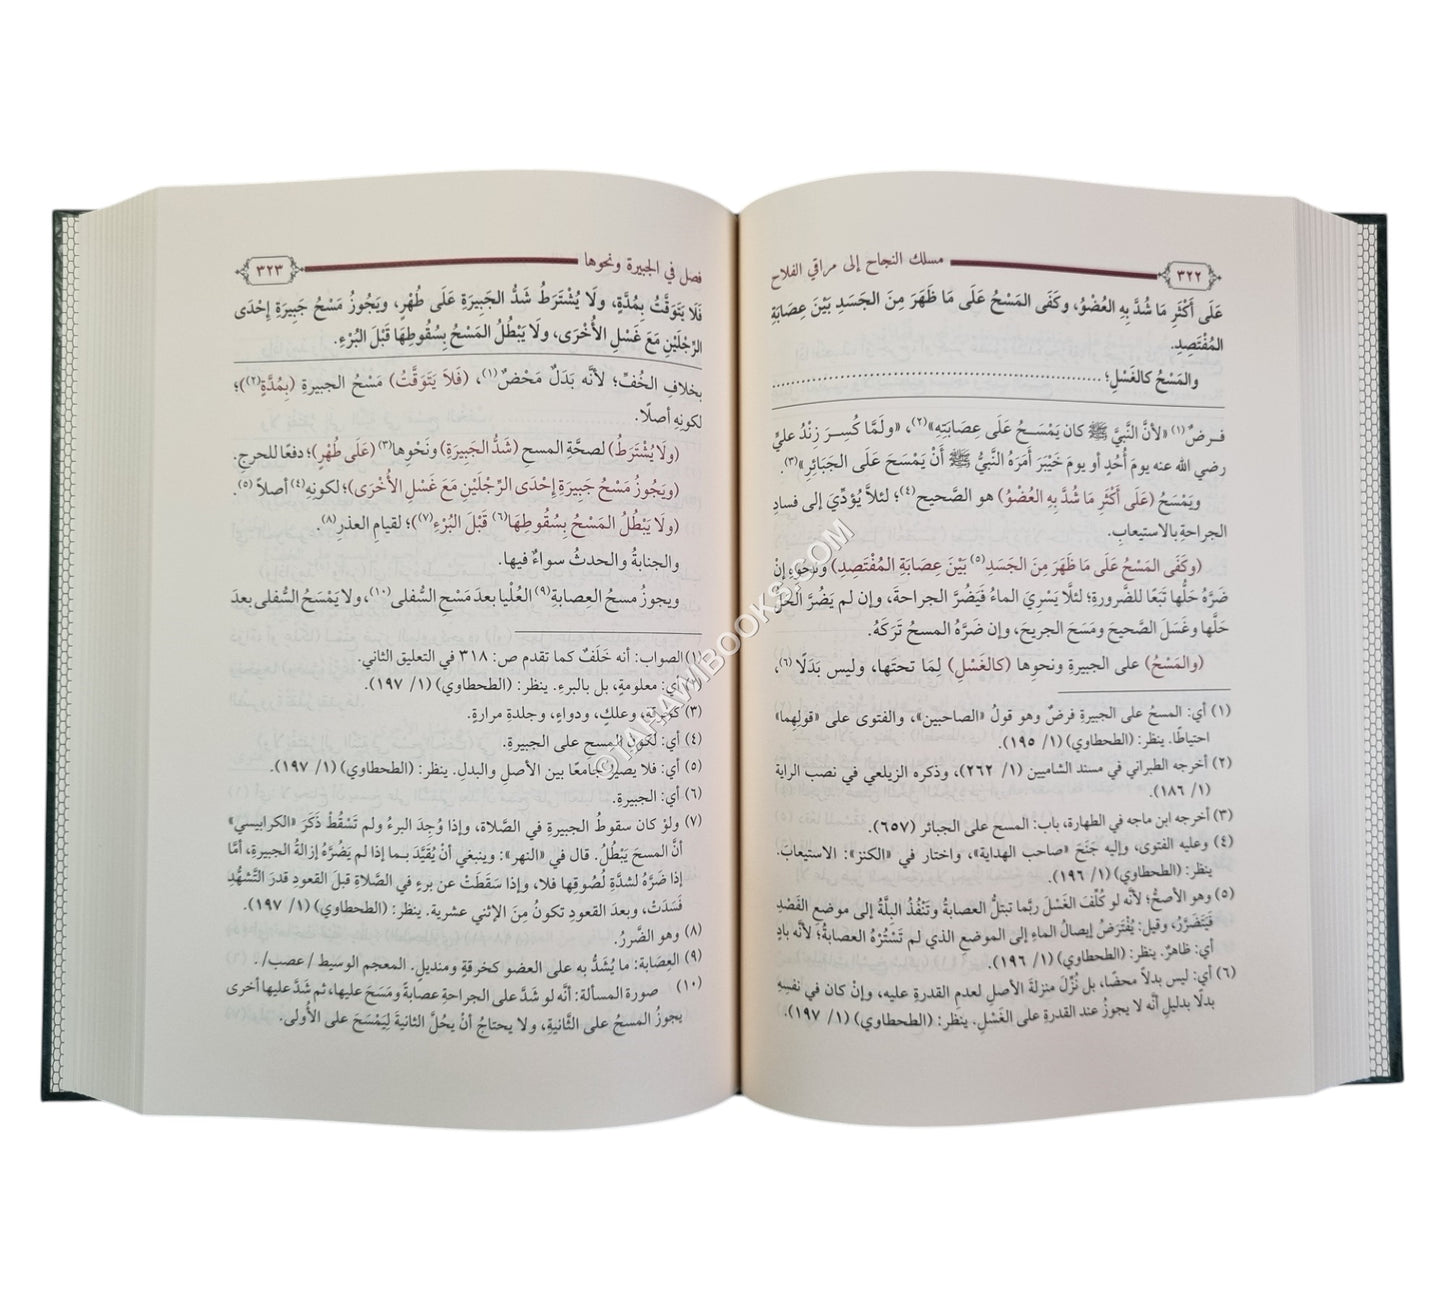 ٣٢٢
مسلك النجاح إلى مراقي الفلاح
عَلَى أَكْثَرِ مَا شُدَّ بِهِ العُضْوُ، وكَفَى المَسْحُ عَلَى مَا ظَهَرَ مِنَ الجَسَدِ بَيْنَ عِصَابَةِ
المُفْتَصِدِ.
والمَسْحُ كالغَسْلِ؛ ................................................
فـرضٌ(١) «لأنَّ النَّبيَّ ﷺ كان يَمْسَـحُ عَلَى عِصَابَتِهِ»(٢)، «ولَمَّا كُسِـرَ زنْدُ عليٍّ
رضي الله عنه يومَ أُحُدٍ أو يومَ خَيْبَرَ أمَرَهُ النَّبيُّ ﷺ أنْ يَمْسَحَ عَلَى الجَبَائِرِ»(٣).
ويَمْسَحُ (عَلَى أَكْثَرِ مَا شُدَّ بِهِ العُضْوُ) هو الصَّحيح(٤)؛ لئلاَّ يُؤدِّيَ إلى فسادِ
الجراحةِ بالاستيعابِ.
(وكَفَى المَسْحُ عَلَى مَا ظَهَرَ مِنَ الجَسَدِ(٥) بَيْنَ عِصَابَةِ المُفْتَصِدِ) ونحوِهِ إنْ
ضَرَّهُ حَلُّها تَبَعًا للضرورةِ؛ لئلّا يَسْرِيَ الماءُ فَيَضُرَّ الجراحةَ، وإن لم يَضُرَّ الحَلُّ
حَلَّها وغَسَلَ الصَّحيحَ ومَسَحَ الجريحَ، وإن ضَرَّهُ المسحُ تَرَكَهُ.
(والمَسْحُ) على الجبيرةِ ونحوِها (كالغَسْلِ) لِمَا تحتَها، وليس بَدَلًا(٦)،
(١) أي: المسحُ على الجبيرةِ فرضٌ وهو قولُ «الصاحبين»، والفتوى على «قولِهِما»
احتياطًا. ينظر: (الطحطاوي) (١/ ١٩٥).
(٢) أخرجه الطبراني في مسند الشاميين (١/ ٢٦٢)، وذكره الزيلعي في نصب الراية
(١/ ١٨٦).
(٣) أخرجه ابن ماجه في الطهارة، باب: المسح على الجبائر (٦٥٧).
(٤) وعليه الفتوى، وإليه جَنَحَ «صاحب الهداية»، واختار في «الكنز»: الاستيعابَ.
ينظر: (الطحطاوي) (١/ ١٩٦).
(٥) وهو الأصحُّ؛ لأنه لو كُلِّفَ الغَسْلَ ربَّما تبتلُّ العصابةُ وتَنْفُذُ البِلَّةُ إلى موضعِ الفَصْدِ
فَيَتَضَرَّرُ، وقيل: يُفْتَرَضُ إيصالُ الماءِ إلى الموضعِ الذي لم تَسْتُرْهُ العصابةُ؛ لأنَّه بادٍ
أي: ظاهرٌ. ينظر: (الطحطاوي) (١/ ١٩٦).
(٦) أي: ليس بدلًا محضًا، بل نُزِّلَ منزلةَ الأصلِ لعدمِ القدرةِ عليه، وإنْ كان في نفسِهِ
بدلًا بدليلِ أنَّه لا يجوزُ عند القدرةِ على الغَسْلِ. ينظر: (الطحطاوي) (١/ ١٩٧).
فصل في الجبيرة ونحوها
٣٢٣
فَلَا يَتَوَقَّتُ بِمُدَّةٍ، ولَا يُشْتَرَطُ شَدُّ الجَبِيرَةِ عَلَى طُهْرٍ، ويَجُوزُ مَسْحُ جَبِيرَةِ إِحْدَى
الرِّجْلَيْنِ مَعَ غَسْلِ الأُخْرَى، ولَا يَبْطُلُ المَسْحُ بِسُقُوطِهَا قَبْلَ البُرْءِ.
بخلافِ الخُفِّ؛ لأنَّه بَدَلٌ مَحْضٌ(١)، (فَلَا يَتَوَقَّتُ) مَسْحُ الجبيرةِ (بِمُدَّةٍ(٢))؛
لكونِه أصلًا.
(ولَا يُشْتَرَطُ) لصحَّةِ المسحِ (شَدُّ الجَبِيرَةِ) ونَحْوِها(٣) (عَلَى طُهْرٍ)؛ دفعًا للحرجِ.
(ويَجُوزُ مَسْحُ جَبِيرَةِ إِحْدَى الرِّجْلَيْنِ مَعَ غَسْلِ الأُخْرَى)؛ لكونِهِ(٤) أصلاً(٥).
(ولَا يَبْطُلُ المَسْحُ بِسُقُوطِهَا(٦) قَبْلَ البُرْءِ(٧))؛ لقيامِ العذرِ(٨).
والجنابةُ والحدثُ سواءٌ فيها.
ويجوزُ مسحُ العِصابةِ(٩) العُلْيا بعدَ مَسْحِ السُّفلى(١٠)، ولا يَمْسَحُ السُّفلى بعدَ
(١) الصواب: أنه خَلَفٌ كما تقدم ص: ٣١٨ في التعليق الثاني.
(٢) أي: معلومةٍ، بل بالبرءِ. ينظر: (الطحطاوي) (١/ ١٩٧).
(٣) كخرقةٍ، وعلكٍ، ودواءٍ، وجلدةِ مرارةٍ.
(٤) أي: لكونِ المسحِ على الجبيرةِ.
(٥) أي: فلا يصيرُ جامعًا بين الأصلِ والبدلِ. ينظر: (الطحطاوي) (١/ ١٩٧).
(٦) أي: الجبيرةِ.
(٧) ولوْ كان سقوطُ الجبيرةِ في الصَّلاة، وإذا وُجِدَ البرءُ ولم تَسْقُطْ ذَكَرَ «الكرابيسي»
أنَّ المسحَ يَبْطُلُ. قال في «النهر»: وينبغي أنْ يُقَيَّدَ بـما إذا لم يَضُرَّهُ إزالةُ الجبيرةِ، أمَّا
إذا ضَرَّهُ لشدَّةِ لُصُوقِها فلا، وإذا سَقَطَتْ عن برءٍ في الصَّلاةِ قبلَ القعودِ قدرَ التَّشَهُّدِ
فَسَدَتْ، وبعدَ القعودِ تكونُ مِنَ الإثني عشرية. ينظر: (الطحطاوي) (١/ ١٩٧).
(٨) وهو الضَّررُ.
(٩) العِصَابة: ما يُشَدُّ به على العضو كخرقةٍ ومنديلٍ. المعجم الوسيط /عصب/.
(١٠) صورة المسألة: أنَّه لو شَدَّ على الجراحةِ عصابةً ومَسَحَ عليها، ثم شَدَّ عليها أخرى
يجوزُ المسحُ على الثَّانيةِ، ولا يحتاجُ أنْ يحُلَّ الثانيةَ لِيَمْسَحَ على الأُولى.
©TAHAWIBOOKS.COM